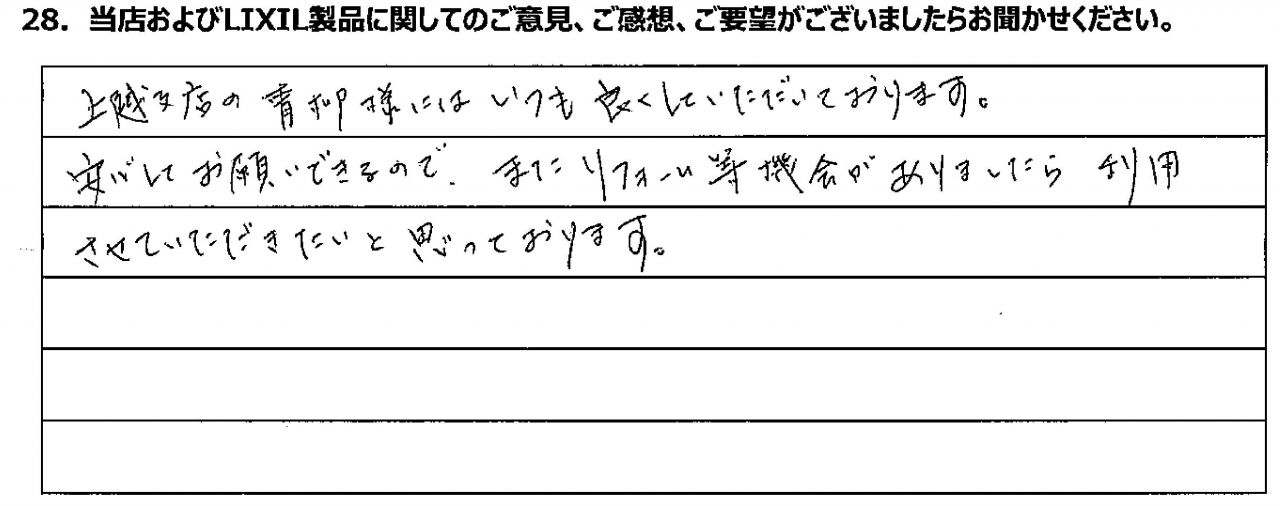 28. 当店およびLIXIL製品に関してのご意見、ご感想、ご要望がございましたらお聞かせください。
上越支店の青柳様にはいつも良くしていただいております。
安心してお願いできるので、またリフォーム等機会がありましたら利用
させていただきたいと思っております。